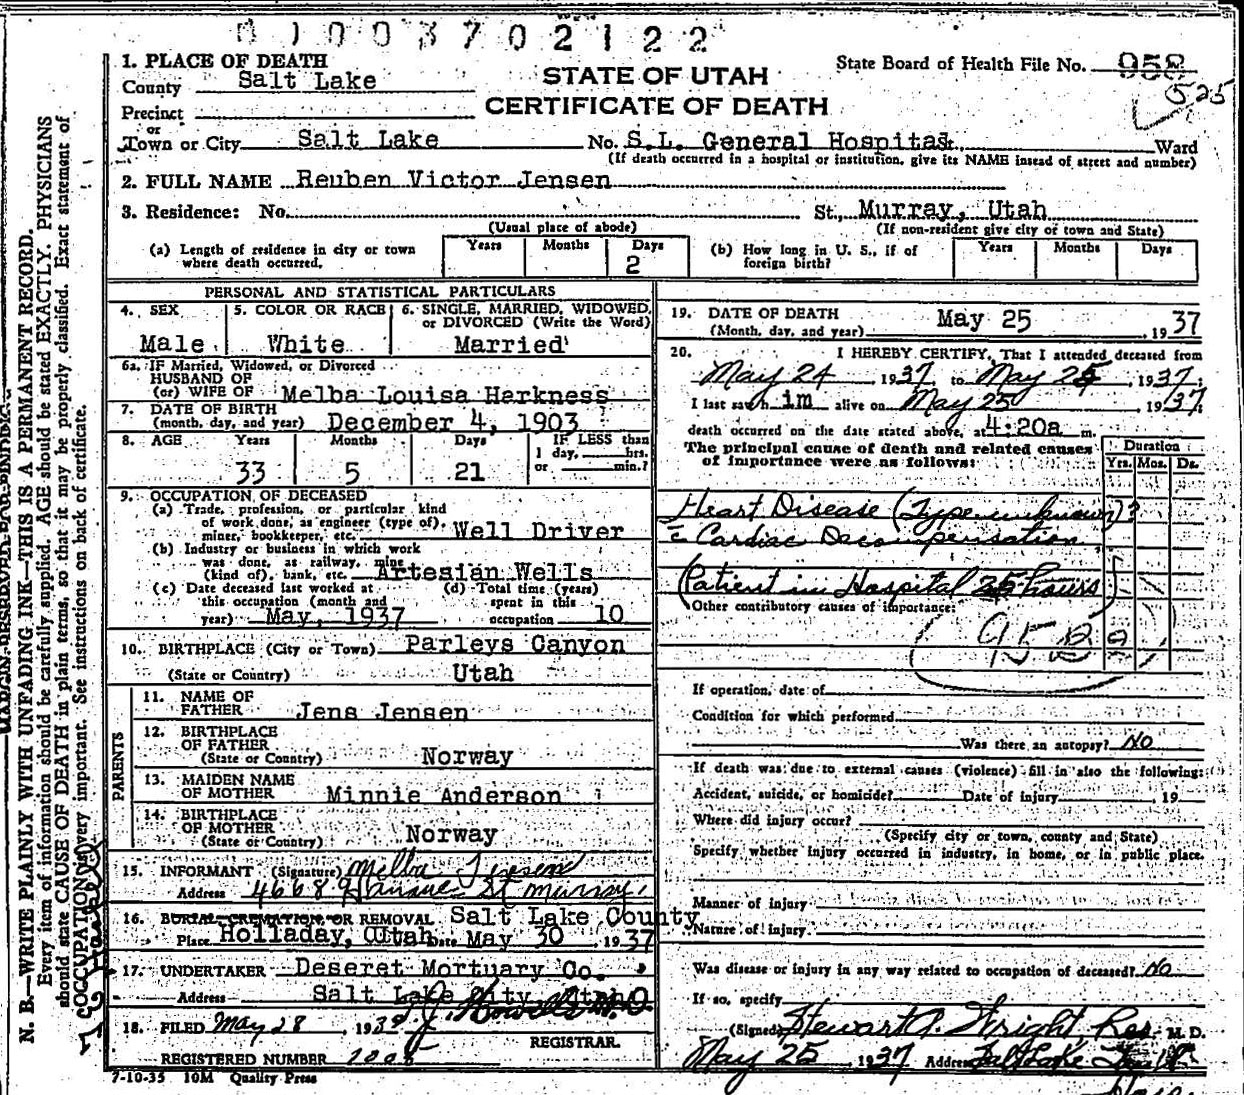 0 1 0 0 3 7 0 2 1 2 2
1. PLACE OF DEATH
County Salt Lake
Precinct
or
Town or City Salt Lake
STATE OF UTAH
CERTIFICATE OF DEATH
State Board of Health File No. 958
525
No. S.L. General Hospital St., Ward
(If death occurred in a hospital or institution, give its NAME instead of street and number)
2. FULL NAME Reuben Victor Jensen
3. Residence: No. St., Murray, Utah
(Usual place of abode) (If non-resident give city or town and State)
(a) Length of residence in city or town where death occurred. Years Months Days 2
(b) How long in U. S., if of foreign birth? Years Months Days
PERSONAL AND STATISTICAL PARTICULARS
4. SEX Male
5. COLOR OR RACE White
6. SINGLE, MARRIED, WIDOWED, or DIVORCED (Write the Word) Married
6a. IF Married, Widowed, or Divorced
HUSBAND OF
(or) WIFE OF Melba Louisa Harkness
7. DATE OF BIRTH
(month, day, and year) December 4, 1903
8. AGE Years Months Days IF LESS than
1 day, hrs.
or min.?
33 5 21
9. OCCUPATION OF DECEASED
(a) Trade, profession, or particular kind
of work done, as engineer (type of),
miner, bookkeeper, etc. Well Driver
(b) Industry or business in which work
was done, as railway, mine
(kind of), bank, etc. Artesian Wells
(c) Date deceased last worked at
this occupation (month and
year) May, 1937
(d) Total time (years)
spent in this
occupation 10
10. BIRTHPLACE (City or Town) Parleys Canyon
(State or Country) Utah
PARENTS
11. NAME OF
FATHER Jens Jensen
12. BIRTHPLACE
OF FATHER
(State or Country) Norway
13. MAIDEN NAME
OF MOTHER Minnie Anderson
14. BIRTHPLACE
OF MOTHER
(State or Country) Norway
15. INFORMANT (Signature) Melba Jensen
Address 4668 St Murray
16. BURIAL CREMATION OR REMOVAL Salt Lake County
Place Holladay, Utah Date May 30, 1937
17. UNDERTAKER Deseret Mortuary Co.
Address Salt Lake City Utah
18. FILED May 28, 193
REGISTRAR
REGISTERED NUMBER 1005
7-10-35 10M Quality Press
19. DATE OF DEATH
(Month, day, and year) May 25, 1937
20. I HEREBY CERTIFY, That I attended deceased from
May 24, 1937, to May 25, 1937;
I last saw h im alive on May 25, 1937;
death occurred on the date stated above, at 4:20a m.
The principal cause of death and related causes
of importance were as follows:
Duration
Yrs. Mos. Ds.
Heart Disease (Type unknown) ?
c Cardiac Decompensation
(Patient in Hospital 25 hours)
Other contributory causes of importance:
95 B
If operation, date of
Condition for which performed
Was there an autopsy? No
If death was due to external causes (violence) fill in also the following:
Accident, suicide, or homicide? Date of injury , 19
Where did injury occur?
(Specify city or town, county and State)
Specify whether injury occurred in industry, in home, or in public place.
Manner of injury
Nature of injury
Was disease or injury in any way related to occupation of deceased? No
If so, specify
(Signed) Stewart A. Wright, Res M. D.
May 25 1937 Address Salt Lake
N. B.—WRITE PLAINLY WITH UNFADING INK—THIS IS A PERMANENT RECORD.
Every item of information should be carefully supplied. AGE should be stated EXACTLY. PHYSICIANS
should state CAUSE OF DEATH in plain terms, so that it may be properly classified. Exact statement of
OCCUPATION is very important. See instructions on back of certificate.